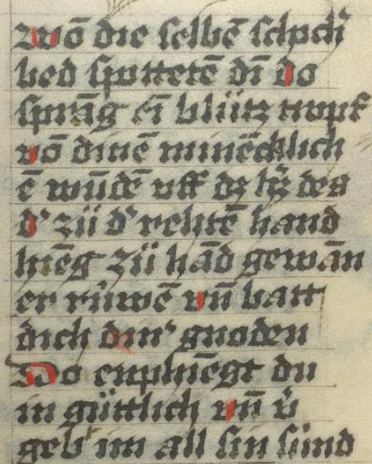 Wō die selbē schch̄
bed spottetē dī do
sprāg ei blůtz tropf
vō dinē minēcklich
ē wūdē uff dz h̄z des
d' zü d' rehtē hand
hiēg zü hād gewan
er rüwē vn̄ batt
dich din' gnoden
Do enphiēgt du
in gůttlich vn̄ v̄
geb' im all sin sünd